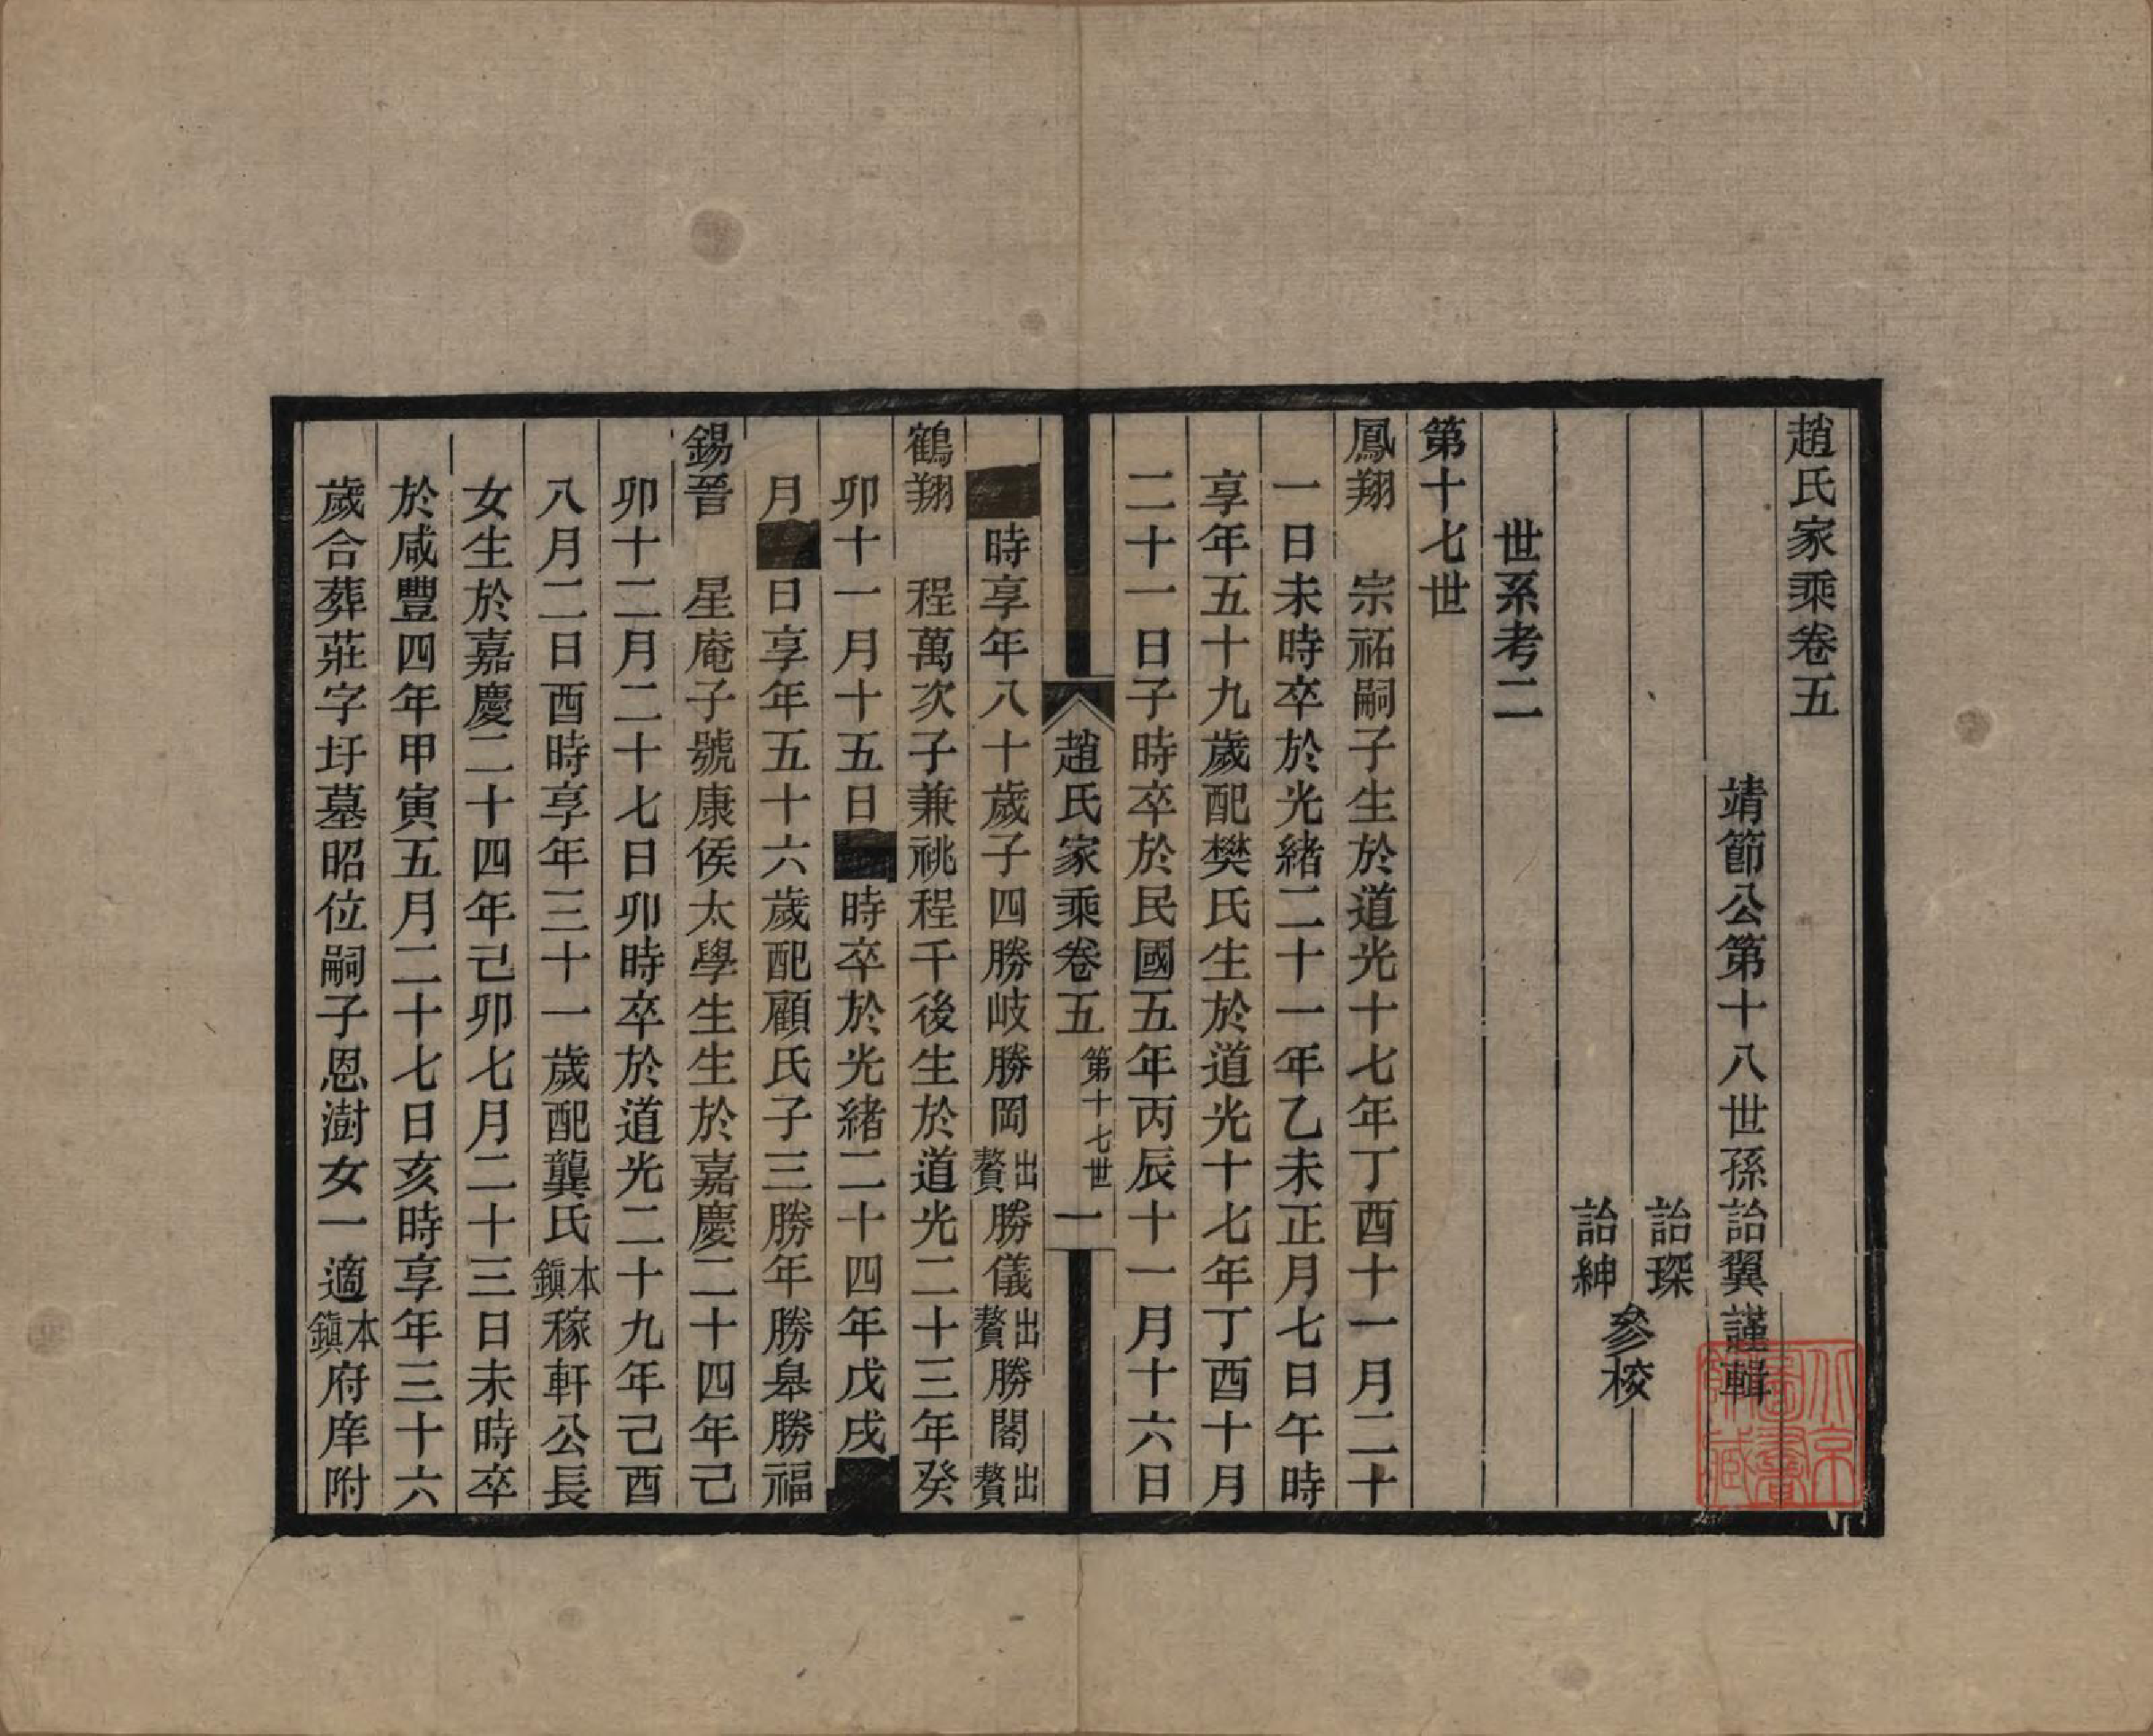 趙氏家乘卷五
靖節公第十八世孫詒翼謹輯
詒琛
詒紳
參校
世系考二
第十七世
鳳翔　宗祏嗣子生於道光十七年丁酉十一月二十
一日未時卒於光緒二十一年乙未正月七日午時
享年五十九歲配樊氏生於道光十七年丁酉十月
二十一日子時卒於民國五年丙辰十一月十六日
趙氏家乘卷五　第十七世　一
■時享年八十歲子四勝岐勝岡出贅勝儀出贅勝閣出贅
鶴翔　程萬次子兼祧程千後生於道光二十三年癸
卯十一月十五日■時卒於光緒二十四年戊戌■
月■日享年五十六歲配顧氏子三勝年勝皋勝福
錫晉　星庵子號康侯太學生生於嘉慶二十四年己
卯十二月二十七日卯時卒於道光二十九年己酉
八月二日酉時享年三十一歲配龔氏本鎮稼軒公長
女生於嘉慶二十四年己卯七月二十三日未時卒
於咸豐四年甲寅五月二十七日亥時享年三十六
歲合葬莊字圩墓昭位嗣子恩澍女一適本鎮府庠附
北京圖書館藏